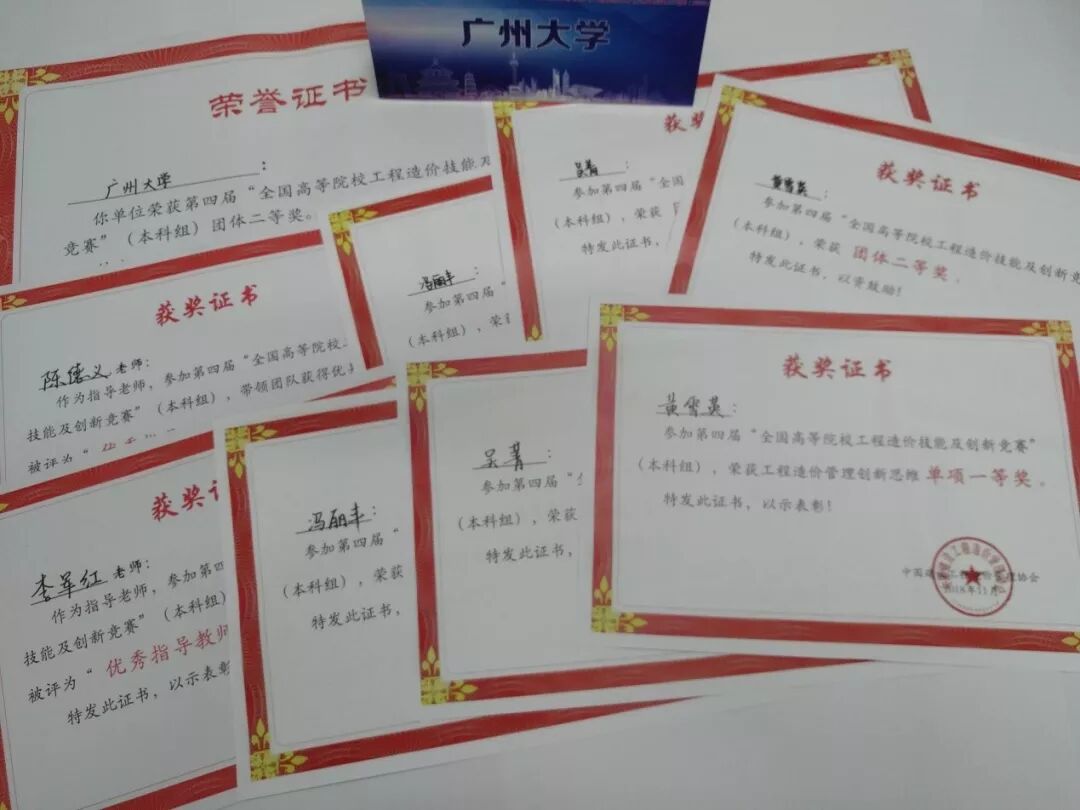 广州大学
荣誉证书
广州大学：
你单位荣获第四届“全国高等院校工程造价技能及
竞赛”（本科组）团体二等奖。
获奖证书
参加第四届“全国
（本科组），荣获
特发此证书，
获奖证书
黄雪英：
参加第四届“全国高等院校工程造价技能及创新竞
（本科组），荣获 团体二等奖，
特发此证书，以资鼓励！
冯丽丰：
参加第四届“
（本科组），荣
获奖证书
陈德义老师：
作为指导老师，参加第四届“全国高等院校
技能及创新竞赛”（本科组），带领团队获得优
被评为“
获奖证
李军红老师：
作为指导老师，参加第四
技能及创新竞赛”（本科组
被评为“优秀指导教师
特发此证书，以示表彰
冯丽丰：
参加第四届“
（本科组），荣获
特发此证书，
吴菁：
参加第四届“
（本科组），荣获
特发此证书，
获奖证书
黄雪英：
参加第四届“全国高等院校工程造价技能及创新竞赛”
（本科组），荣获工程造价管理创新思维 单项一等奖。
特发此证书，以示表彰！
2018年11月